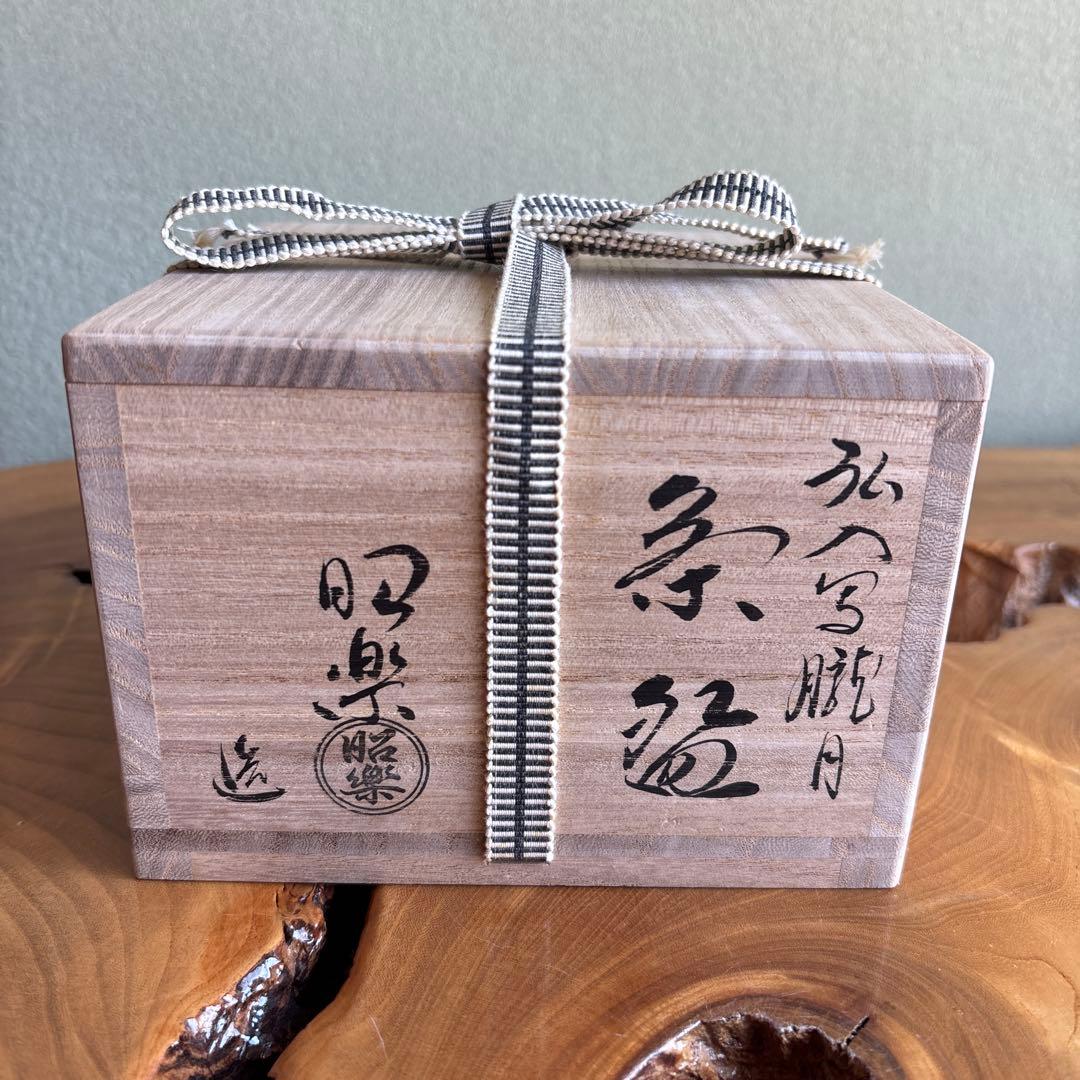 弘入写朧月
茶盌
昭楽
昭樂
造